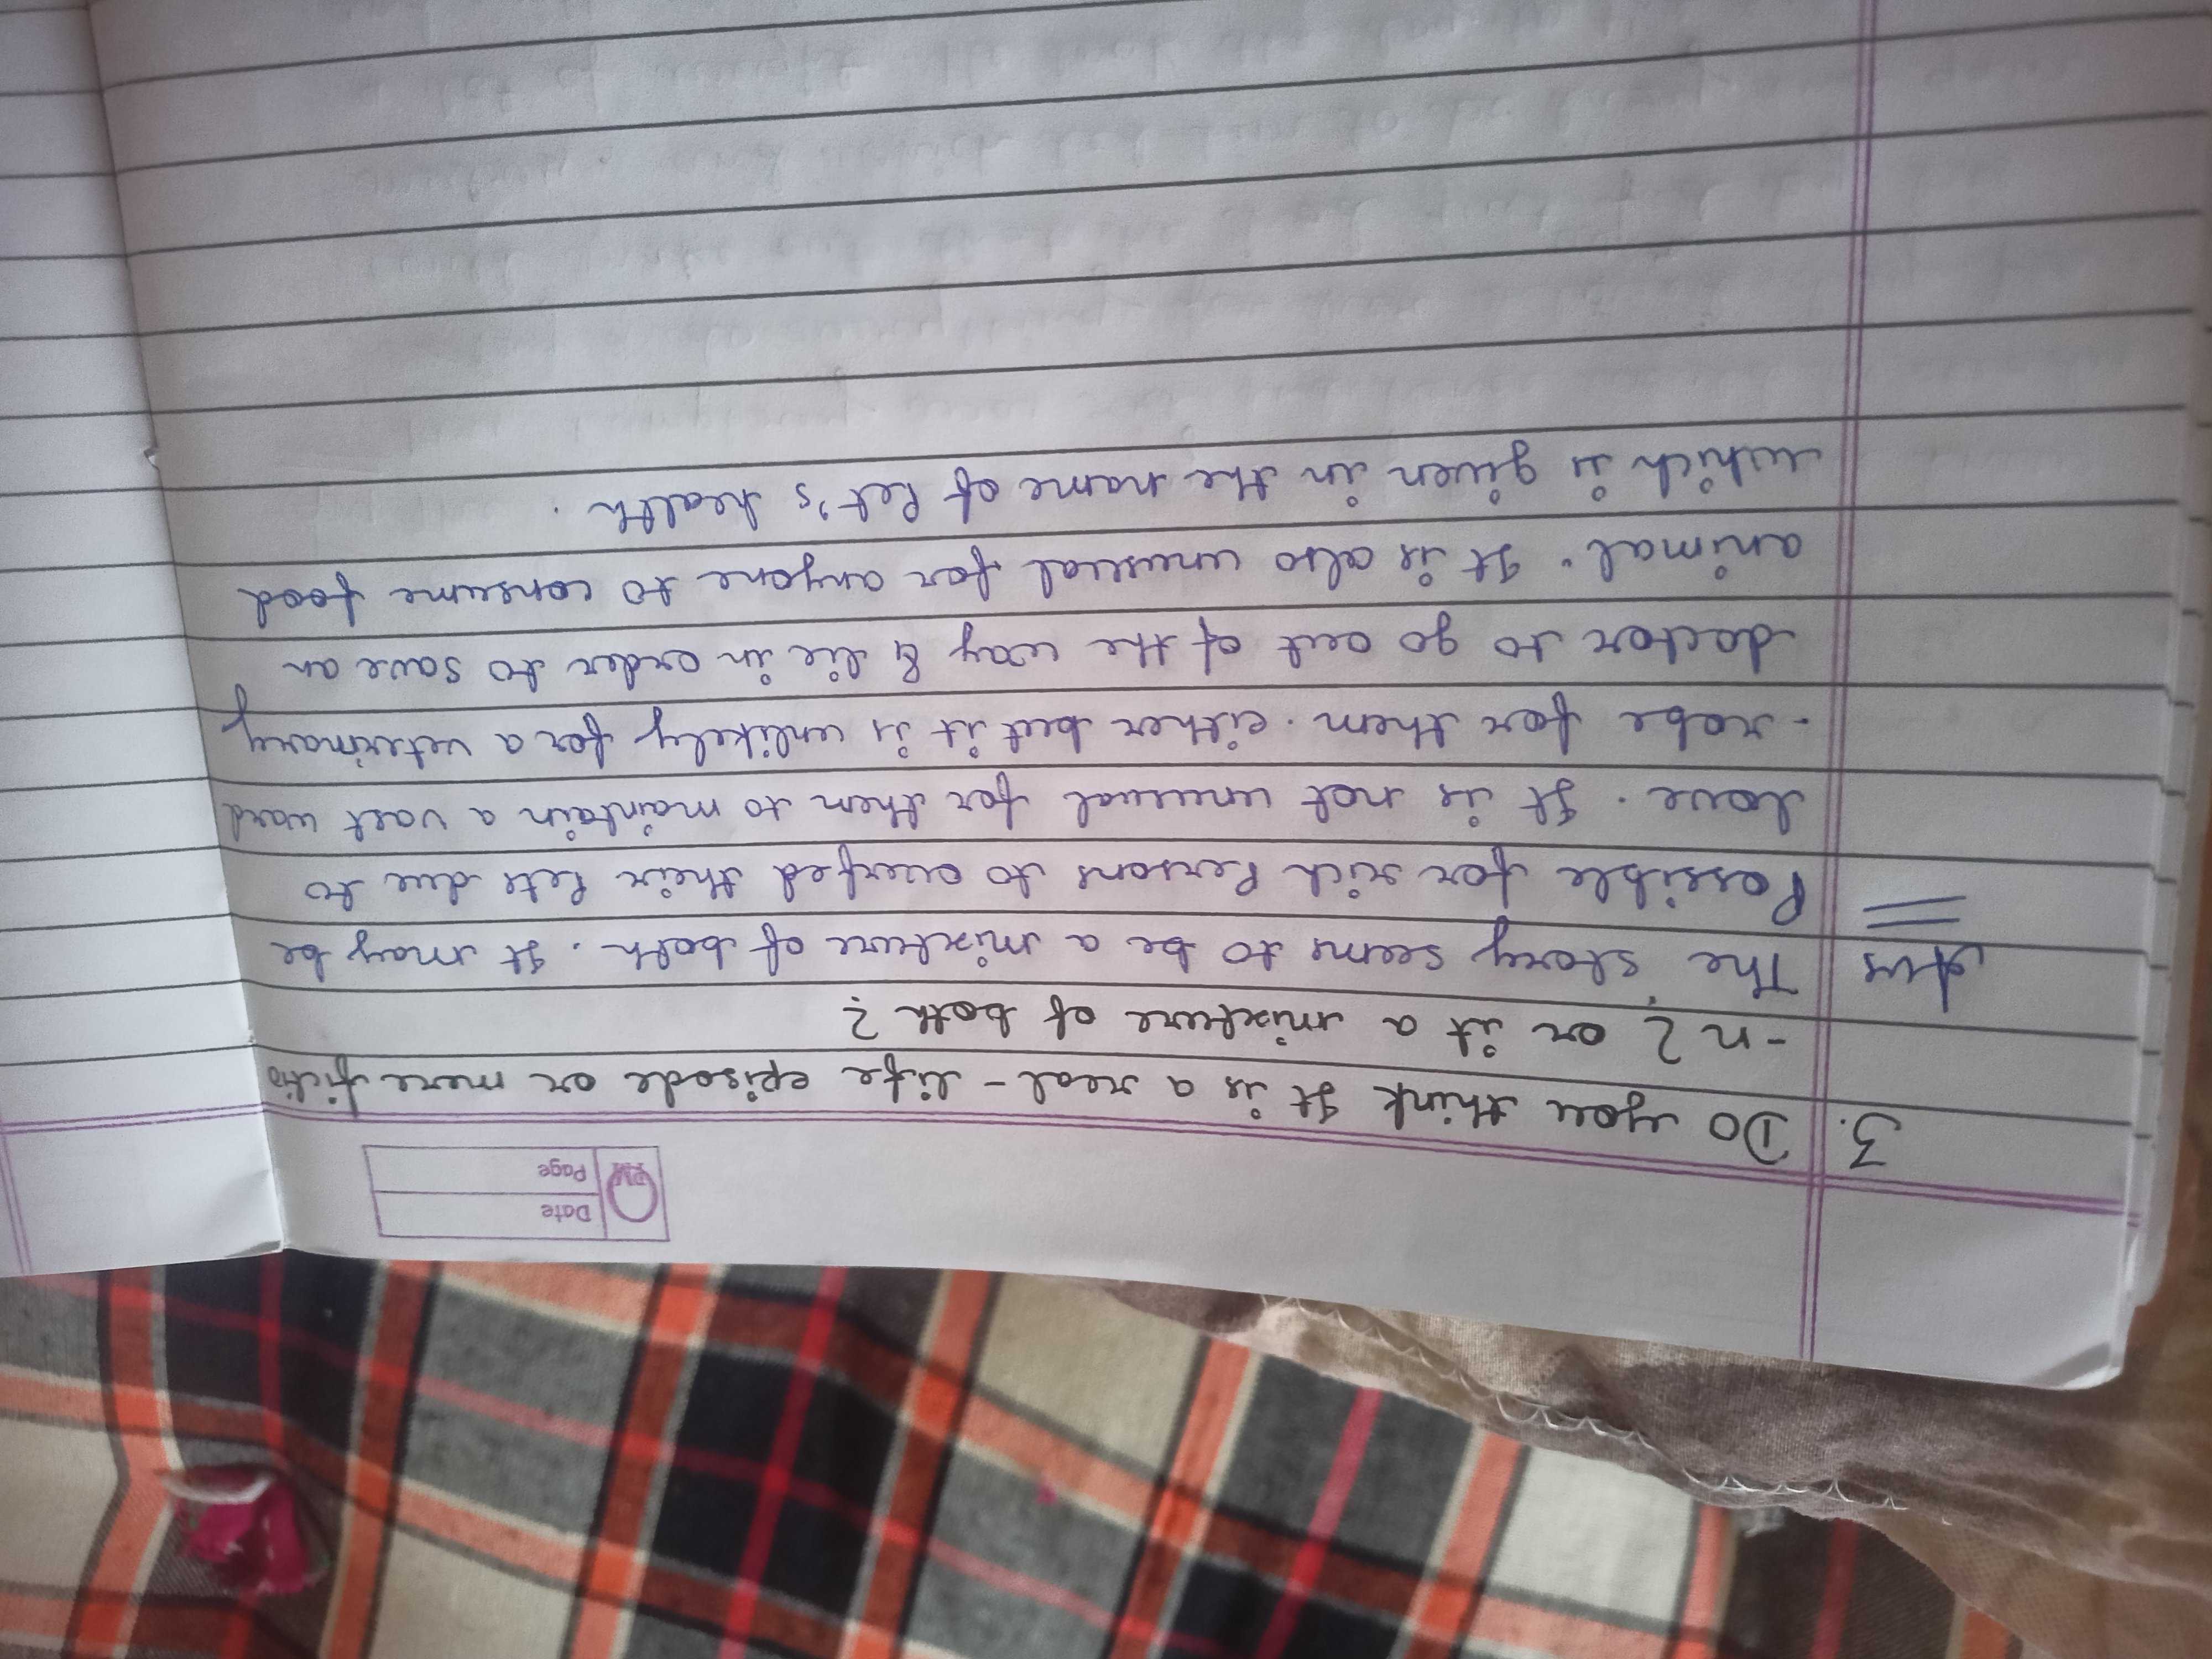 Date
Page
3. Do you think It is a real-life episode or mere fictio
-n? or it a mixture of both?
Ans The story seems to be a mixture of both. It may be
Possible for rich Persons to overfed their Pets due to
love. It is not unusual for them to maintain a vast ward
-robe for them. either but it is unlikely for a veterinary
doctor to go out of the way & lie in order to save an
animal. It is also unusual for anyone to consume food
which is given in the name of Pet's health.